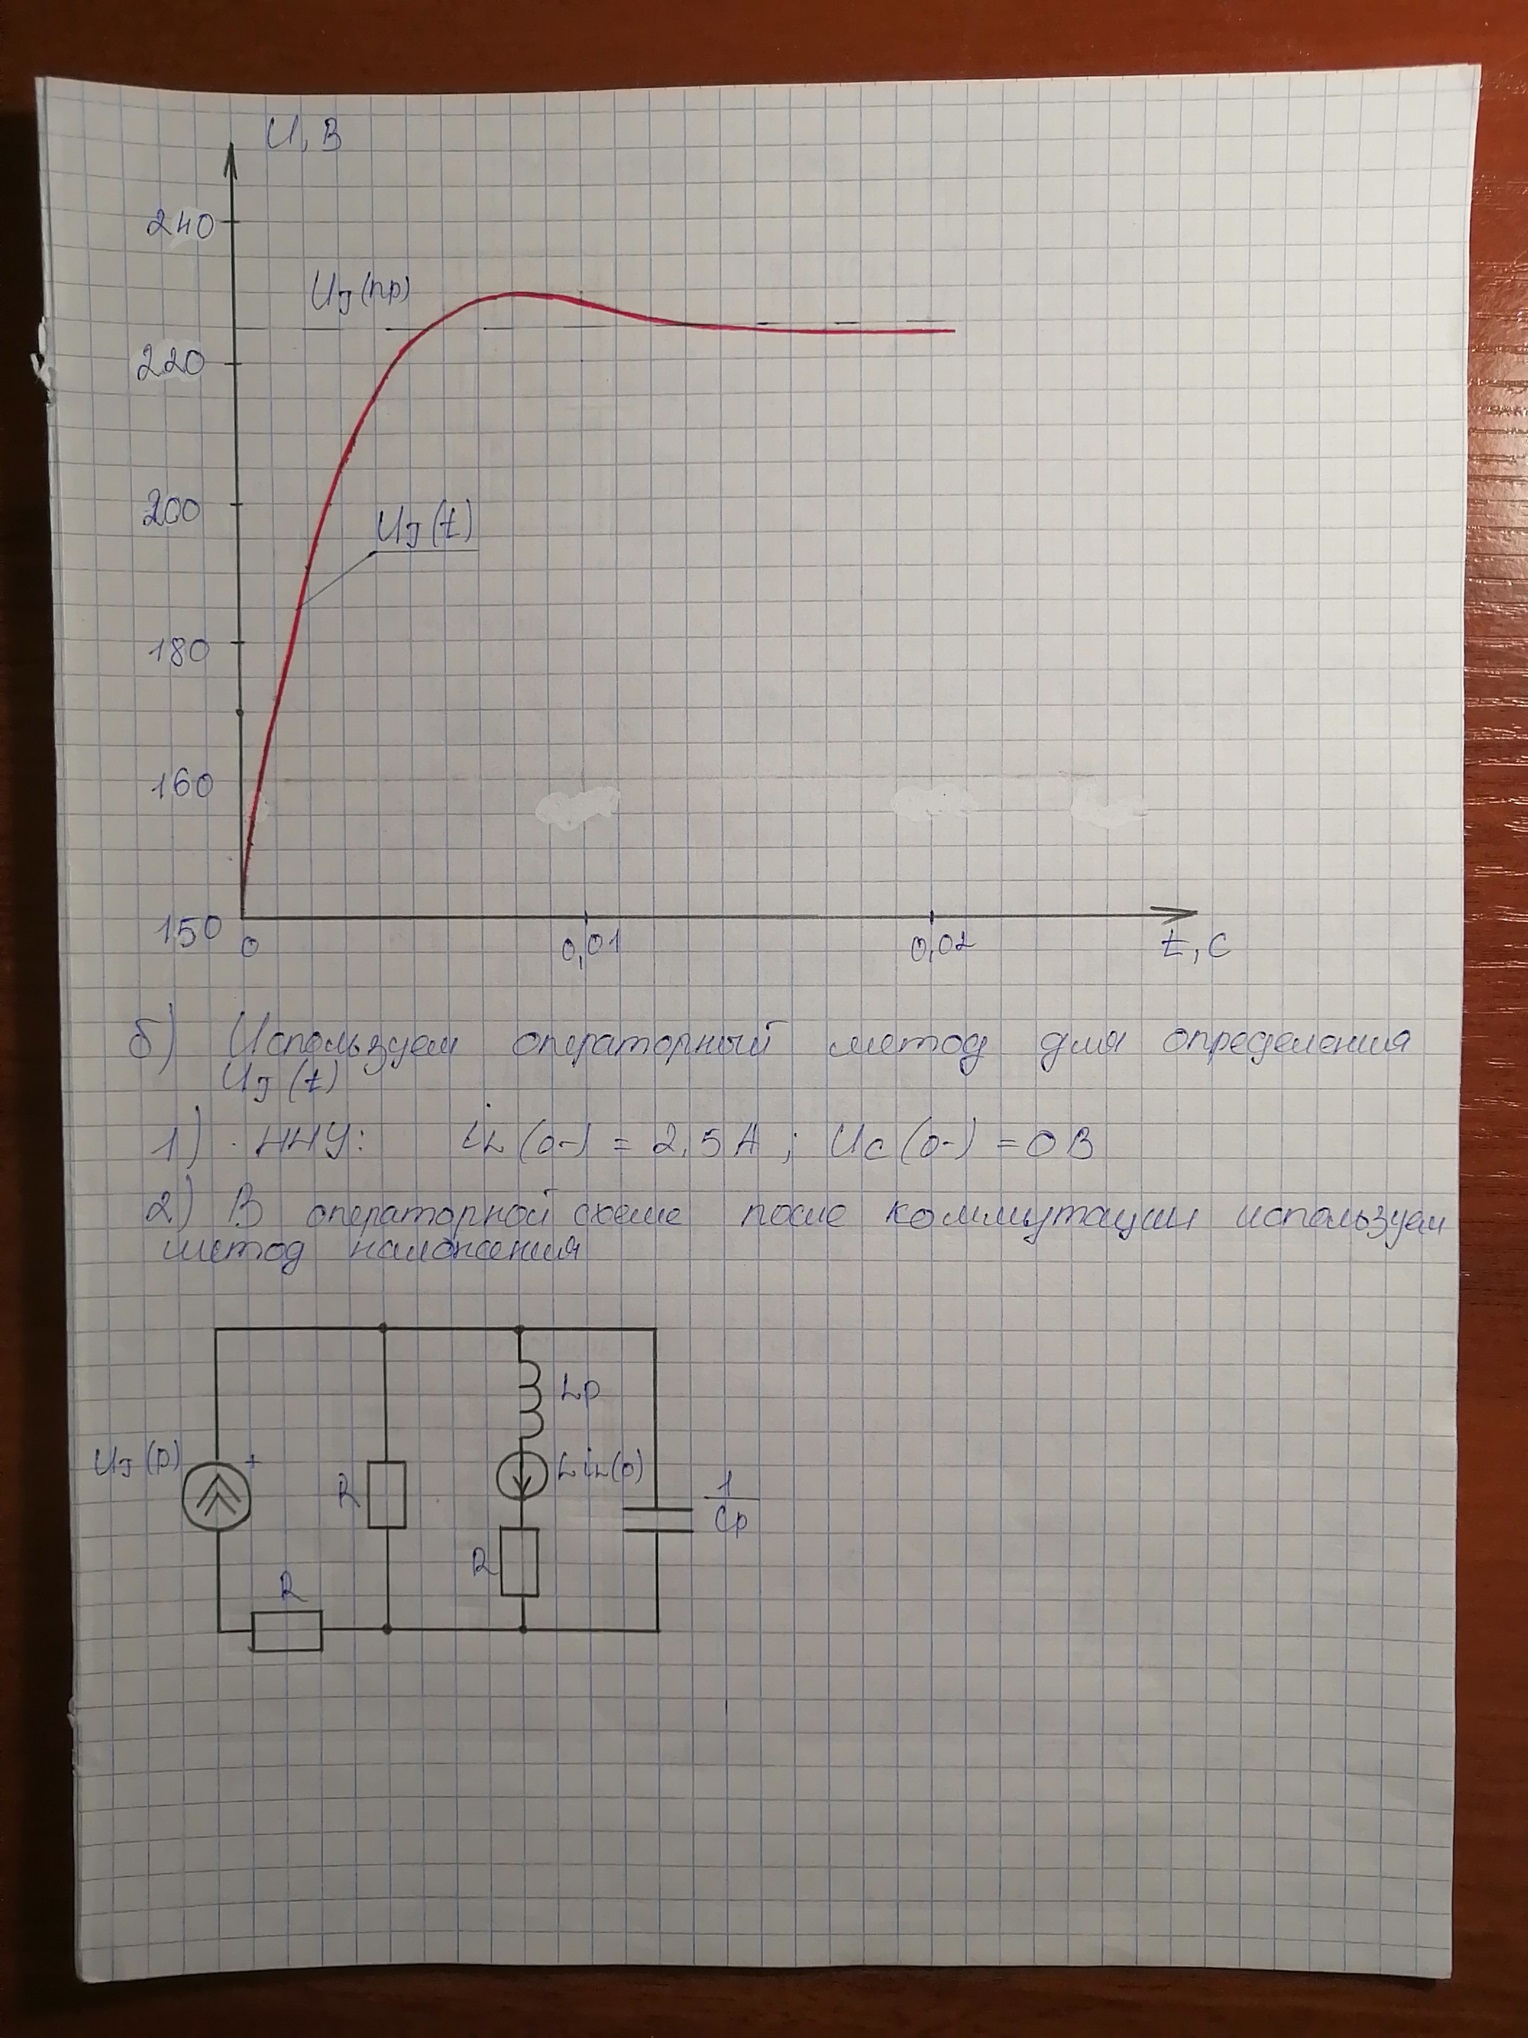 U, В
240
Uj(пр)
220
200
Uj(t)
180
160
150
0
0,01
0,02
t, c
б) Используем операторный метод для определения
Uj(t)
1) ННУ: iL(0-) = 2,5 А ; Uc(0-) = 0 В
2) В операторной схеме после коммутации используем
метод наложения
Lp
Uj(p)
+
LiL(0)
R
1
Cp
R
R